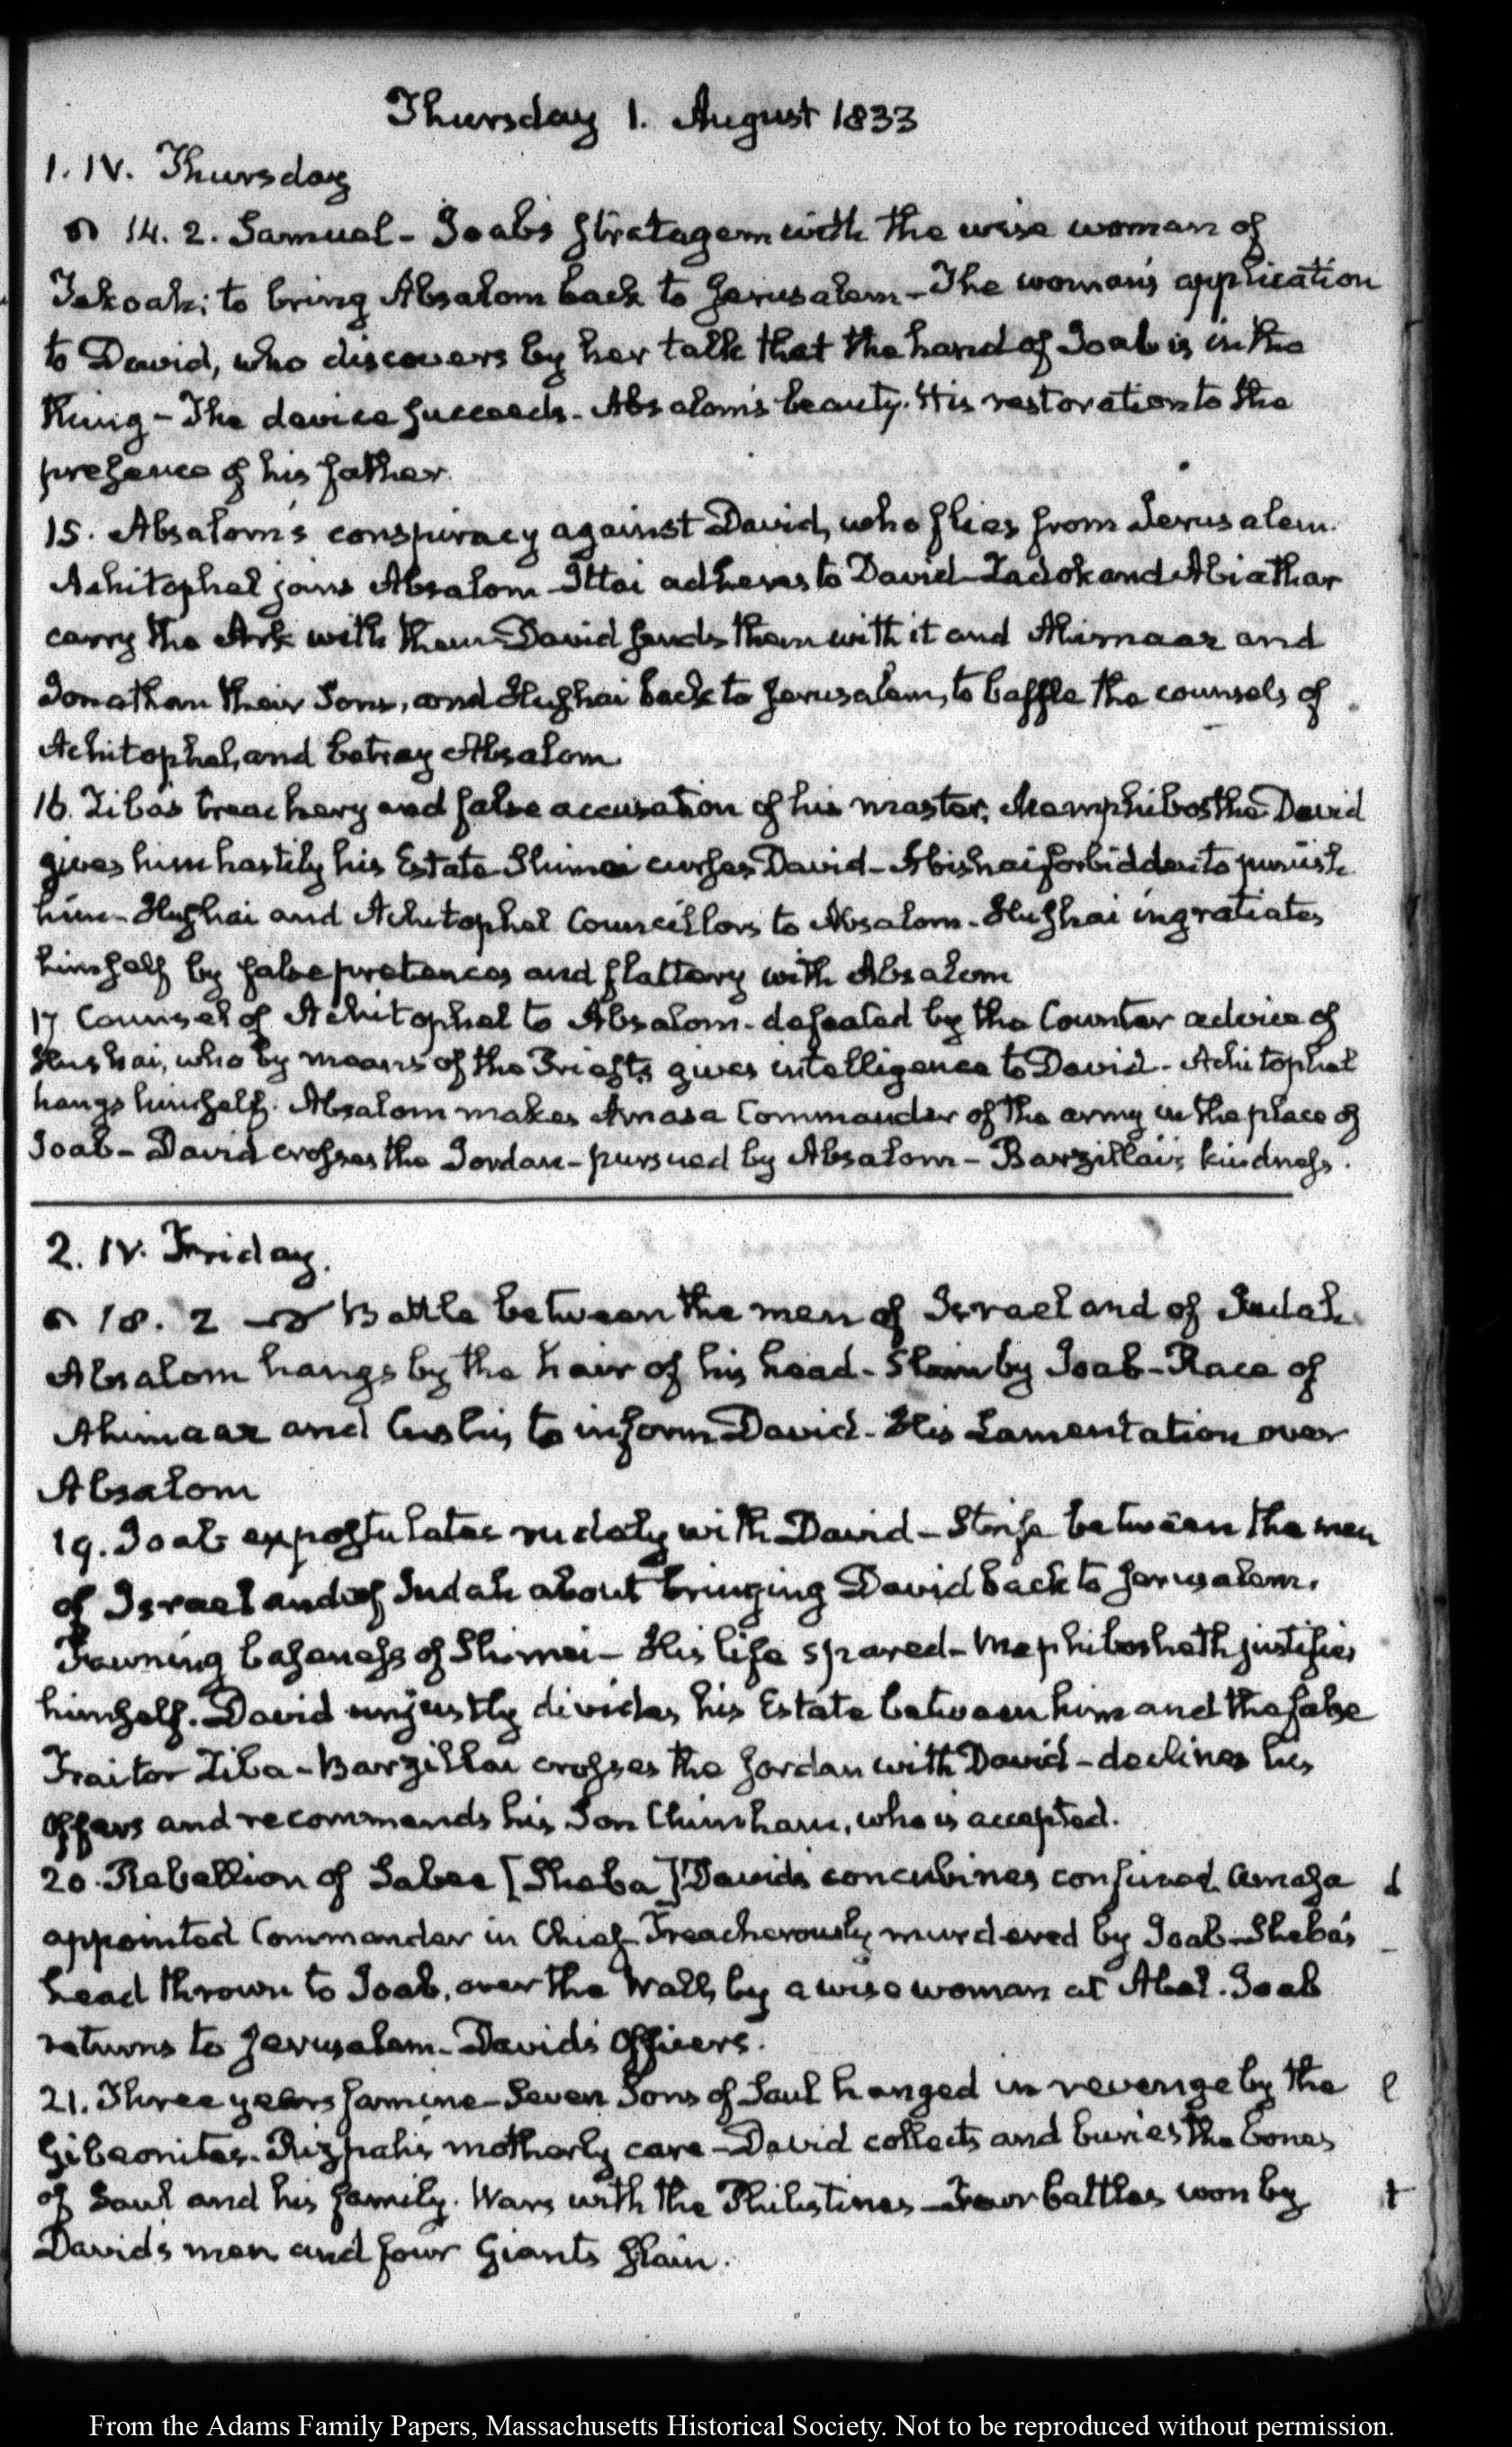 Thursday 1. August 1833
1. IV. Thursday
14. 2. Samuel - Joab's stratagem with the wise woman of
Tekoah; to bring Absalom back to Jerusalem - The woman's application
to David, who discovers by her talk that the hand of Joab is in the
thing - The device succeeds - Absalom's beauty. His restoration to the
presence of his father.
15. Absalom's conspiracy against David, who flies from Jerusalem.
Achitophel joins Absalom - Ittai adheres to David - Zadok and Abiathar
carry the Ark with them - David sends them with it and Ahimaaz and
Jonathan their Sons, and Hushai back to Jerusalem, to baffle the counsels of
Achitophel, and betray Absalom
16. Ziba's treachery and false accusation of his master, David
gives him hastily his Estate - Shimei curses David - Abishai forbidden to punish
him - Hushai and Achitophel Councillors to Absalom - Hushai ingratiates
himself by false pretences and flattery with Absalom
17 Counsel of Achitophel to Absalom - defeated by the Counter advice of
Hushai, who by means of the Priests gives intelligence to David - Achitophel
hangs himself. Absalom makes Amasa Commander of the army in the place of
Joab - David crosses the Jordan - pursued by Absalom - Barzillai's kindness.
2. IV. Friday.
18. 2 Battle between the men of Israel and of Judah
Absalom hangs by the hair of his head - Slain by Joab - Race of
Ahimaaz and Cushi, to inform David - His Lamentation over
Absalom
19. Joab expostulates rudely with David - Strife between the men
of Israel and of Judah about bringing David back to Jerusalem.
Fawning baseness of Shimei - His life spared - Mephibosheth justifies
himself. David unjustly divides his Estate between him and the false
Traitor Ziba - Barzillai crosses the Jordan with David - declines his
offers and recommends his Son Chimham, who is accepted.
20. Rebellion of Sabee [Sheba] David's concubines confined Amasa
appointed Commander in Chief - Treacherously murdered by Joab - Sheba's
head thrown to Joab, over the Wall, by a wise woman at Abel. Joab
returns to Jerusalem - David's Officers.
21. Three years famine - Seven Sons of Saul hanged in revenge by the
Gibeonites. Rizpah's motherly care - David collects and buries the bones
of Saul and his family. Wars with the Philistines - Four battles won by
David's men and four Giants slain.
From the Adams Family Papers, Massachusetts Historical Society. Not to be reproduced without permission.